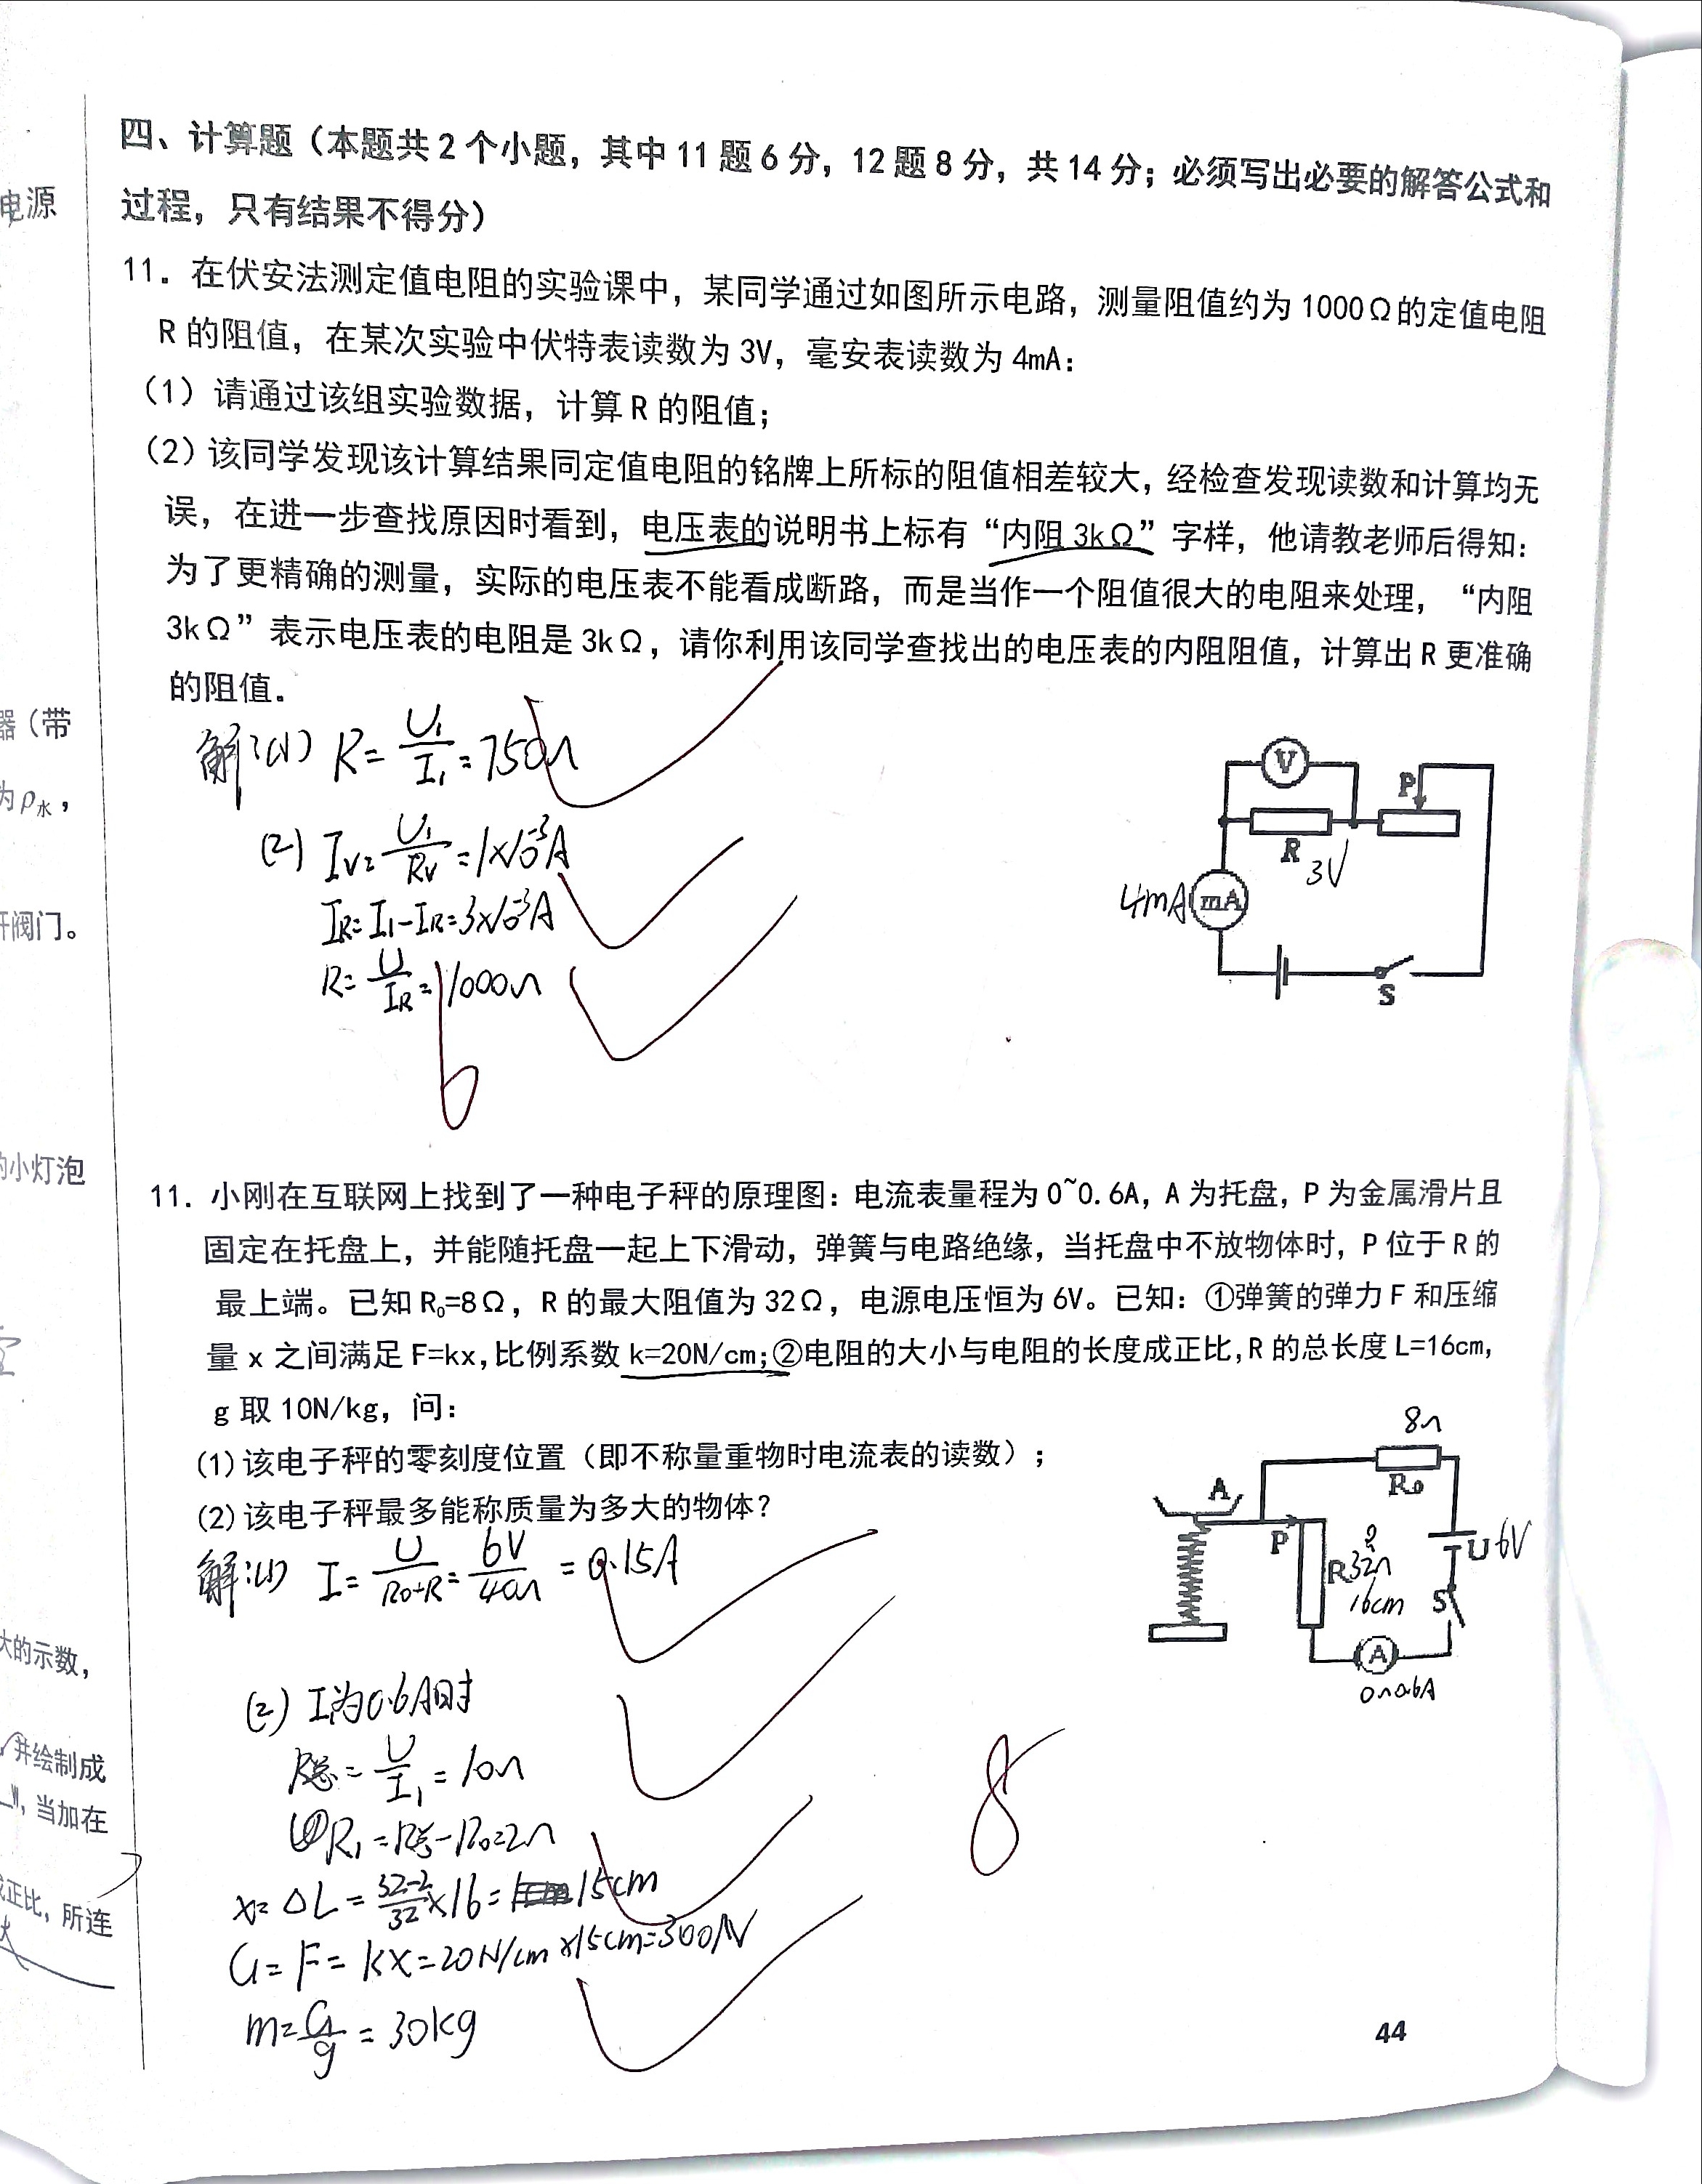 四、计算题（本题共2个小题，其中11题6分，12题8分，共14分；必须写出必要的解答公式和
过程，只有结果不得分）
11. 在伏安法测定值电阻的实验课中，某同学通过如图所示电路，测量阻值约为1000Ω的定值电阻
R的阻值，在某次实验中伏特表读数为3V，毫安表读数为4mA：
（1）请通过该组实验数据，计算R的阻值；
（2）该同学发现该计算结果同定值电阻的铭牌上所标的阻值相差较大，经检查发现读数和计算均无
误，在进一步查找原因时看到，电压表的说明书上标有“内阻3kΩ”字样，他请教老师后得知：
为了更精确的测量，实际的电压表不能看成断路，而是当作一个阻值很大的电阻来处理，“内阻
3kΩ”表示电压表的电阻是3kΩ，请你利用该同学查找出的电压表的内阻阻值，计算出R更准确
的阻值.
解：(1) R=U₁/I₁=750Ω
(2) Iv=U₁/Rv=1×10⁻³A
IR=I₁-IR=3×10⁻³A
R=U/IR=1000Ω
6
V
P
R
3V
4mA
mA
S
11. 小刚在互联网上找到了一种电子秤的原理图：电流表量程为0~0.6A，A为托盘，P为金属滑片且
固定在托盘上，并能随托盘一起上下滑动，弹簧与电路绝缘，当托盘中不放物体时，P位于R的
最上端。已知R₀=8Ω，R的最大阻值为32Ω，电源电压恒为6V。已知：①弹簧的弹力F和压缩
量x之间满足F=kx,比例系数k=20N/cm;②电阻的大小与电阻的长度成正比,R的总长度L=16cm,
g取10N/kg，问：
(1)该电子秤的零刻度位置（即不称量重物时电流表的读数）；
(2)该电子秤最多能称质量为多大的物体？
解:(1) I=U/R₀+R=6V/40Ω=0.15A
(2) I为0.6A时
R总=U/I₁=10Ω
R₁=R总-R₀=2Ω
x=ΔL=32-2/32×16=15cm
G=F=kx=20N/cm×15cm=300N
m=G/g=30kg
8
8Ω
R₀
A
P
R
32Ω
16cm
U
6V
S
A
0~0.6A
44
电源
器（带
为ρ水，
开阀门。
的小灯泡
大的示数，
并绘制成
W，当加在
成正比，所连